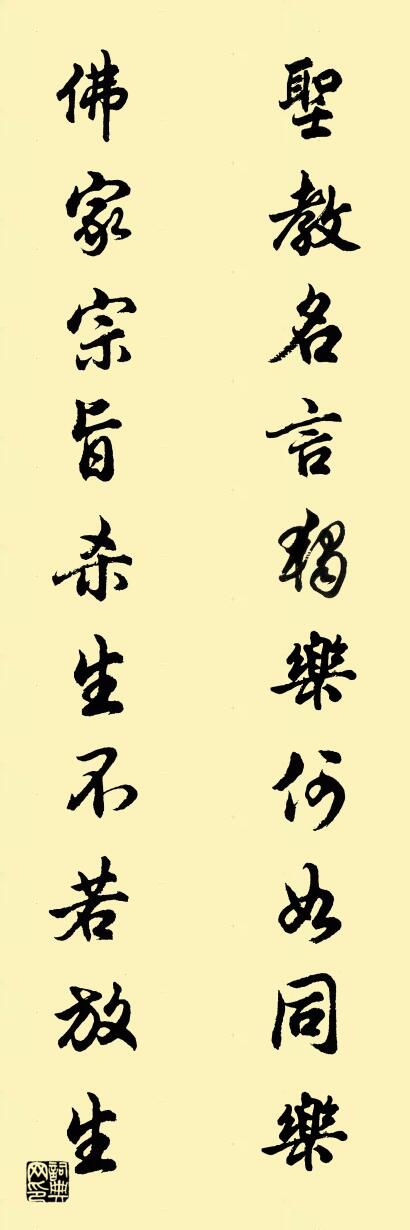 聖教名言獨樂何如同樂
佛家宗旨杀生不若放生
詞典網印